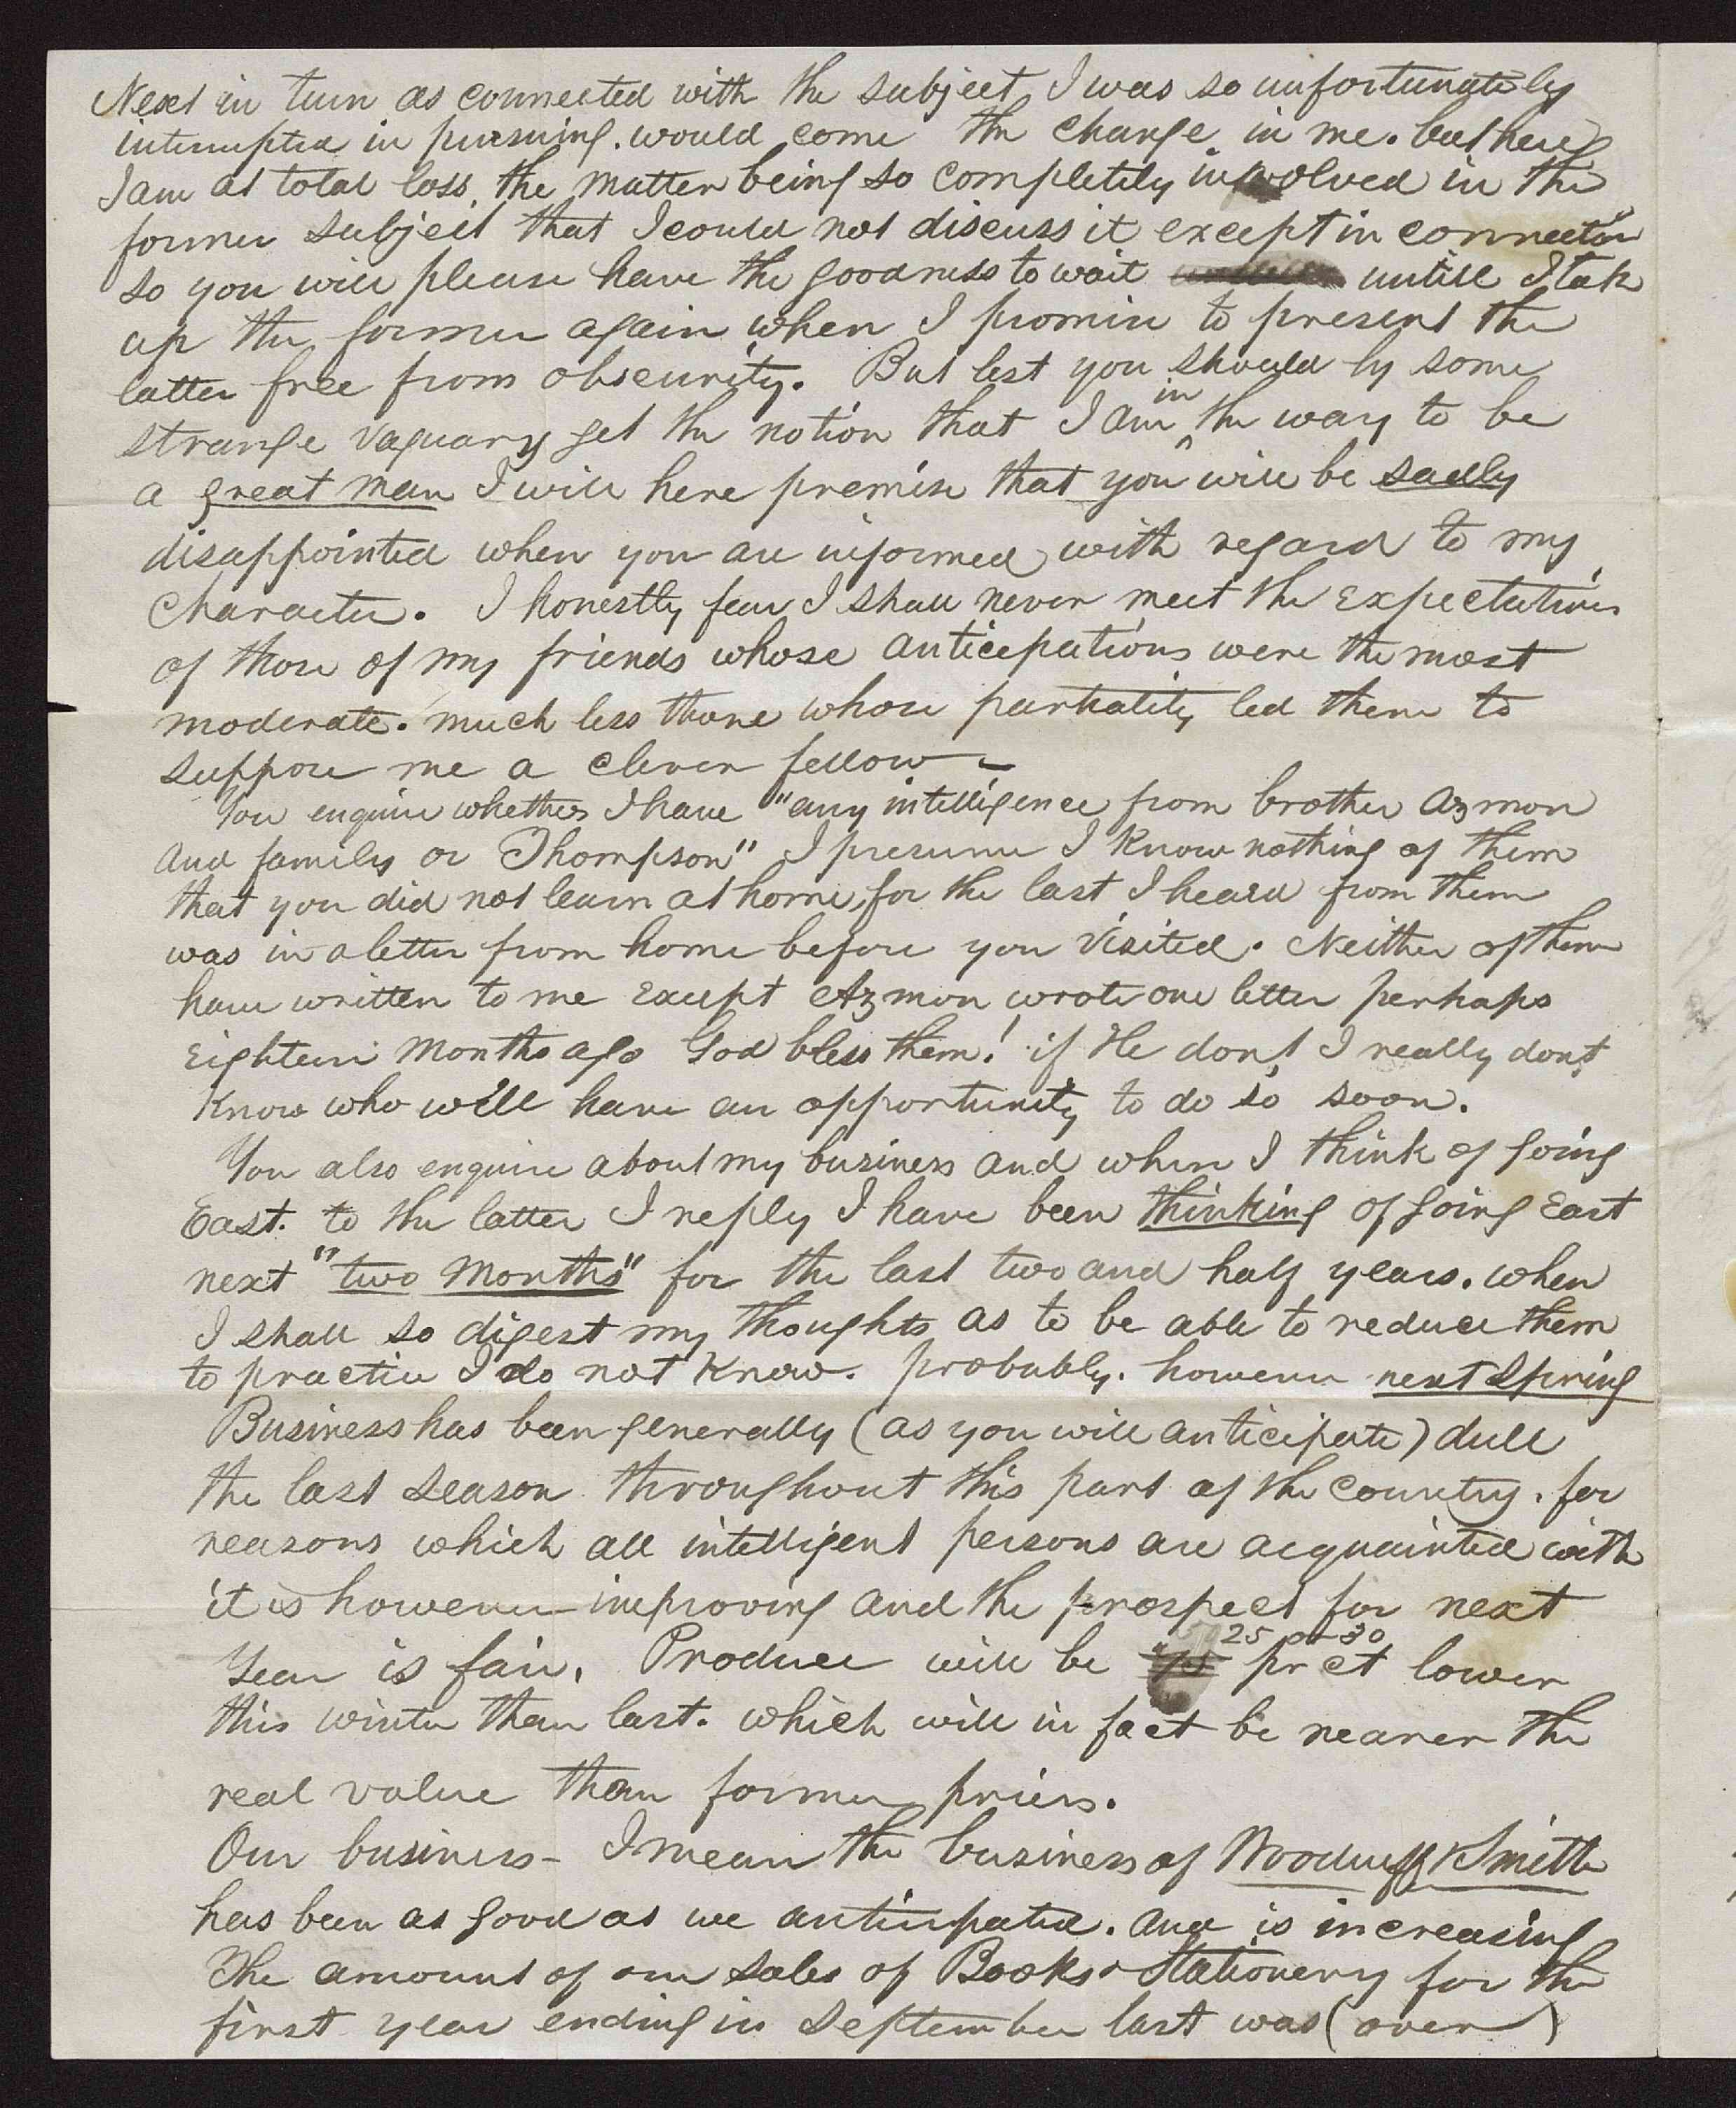 Next in turn as connected with the subject, I was so unfortunately
interrupted in pursuing. would come the change in me. but here
I am at total loss, the matter being so completely involved in the
former subject that I could not discuss it except in connection
so you will please have the goodness to wait untill I take
up the former again when I promise to present the
latter free from obscurity. But lest you should by some
strange vaguary get the notion that I am in the way to be
a great man I will here premise that you will be sadly
disappointed when you are informed with regard to my
Character. I honestly fear I shall never meet the Expectations
of those of my friends whose anticipations were the most
moderate. much less those whose partiality led them to
suppose me a clever fellow –
You enquire whether I have "any intelligence from brother Azmon
and family or Thompson" I presume I know nothing of them
that you did not learn at home, for the last I heard from them
was in a letter from home before you visited. Neither of them
have written to me Except Azmon wrote one letter perhaps
Eighteen Months ago God bless them! if He dont I really dont
Know who will have an opportunity to do so soon.
You also enquire about my business and when I think of going
East. to the latter I reply I have been thinking of going East
next "two Months" for the last two and half years. when
I shall so digest my thoughts as to be able to reduce them
to practice I do not know. probably. however next Spring
Business has been generally (as you will anticipate) dull
the last season throughout this part of the Country. for
reasons which all intelligent persons are acquainted with
it is however improving and the prospect for next
Year is fair. Produce will be 25 or 30 pr ct lower
this winter than last. which will in fact be nearer the
real value than former prices.
Our business – I mean the business of Woodruff & Smith
has been as good as we anticipated. and is increasing
The amount of our sales of Books & Stationery for the
first year ending in September last was (over)